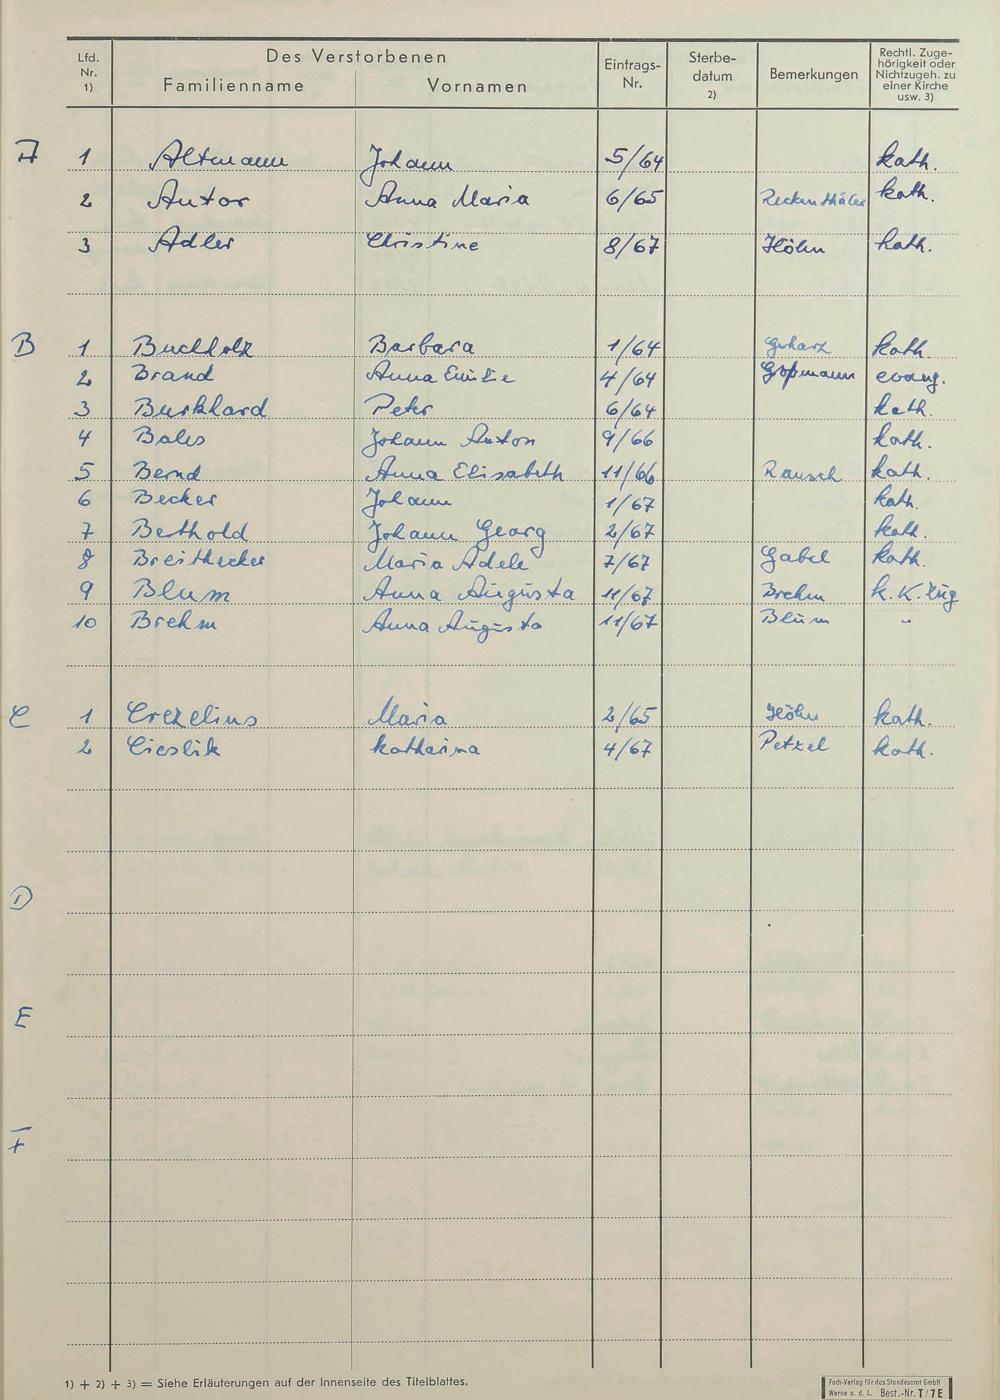 Lfd. Nr. 1) Des Verstorbenen Familienname Vornamen Eintrags-Nr. Sterbe-datum 2) Bemerkungen Rechtl. Zuge-hörigkeit oder Nichtzugeh. zu einer Kirche usw. 3)
A 1 Altmann Johann 5/64 kath.
2 Autor Anna Maria 6/65 Reckenthäler kath.
3 Adler Christine 8/67 Höhn kath.
B 1 Buchholz Barbara 1/64 kath.
2 Brand Anna Emilie 4/64 evang.
3 Burkhard Peter 6/64 kath.
4 Bales Johann Anton 9/66 kath.
5 Bernd Anna Elisabeth 11/66 Rausch kath.
6 Becker Johann 1/67 kath.
7 Bethold Johann Georg 2/67 kath.
8 Breithecker Maria Adele 7/67 Gabel kath.
9 Blum Anna Augusta 11/67 Brehm k. K. Zug
10 Brehm Anna Augusta 11/67 Blum "
C 1 Crezelius Maria 2/65 Höhn kath.
2 Cieslik Katharina 4/67 Petzel kath.
D
E
F
1) + 2) + 3) = Siehe Erläuterungen auf der Innenseite des Titelblattes.
Fach-Verlag für das Standesamt GmbH
Werne a. d. L. Best.-Nr. T/7E